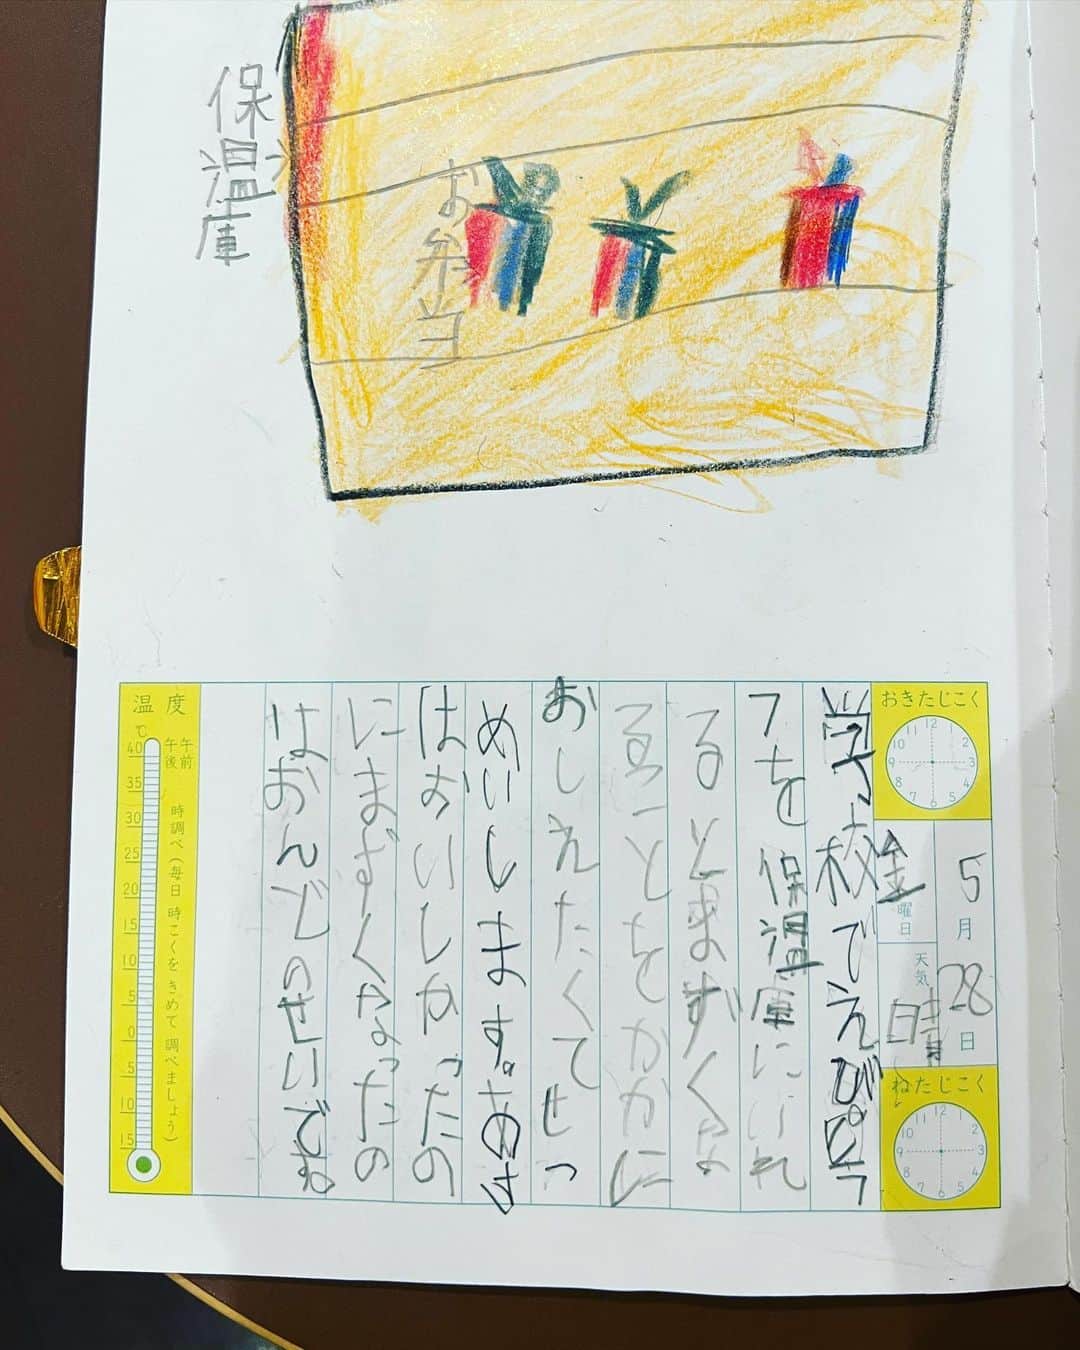 保温庫
お弁当
おきたじこく
5月28日
金曜日
天気 晴
ねたじこく
学校でえぴピラ
フを保温庫にいれ
るとまずくな
ることをかかに
おしえたくてせつ
めいします。あさ
はおいしかったの
にまずくなったの
はおんどのせいです。
温度
℃
午前
午後
時調べ(毎日 時こくを きめて 調べましょう)
40
35
30
25
20
15
10
5
0
5
10
15